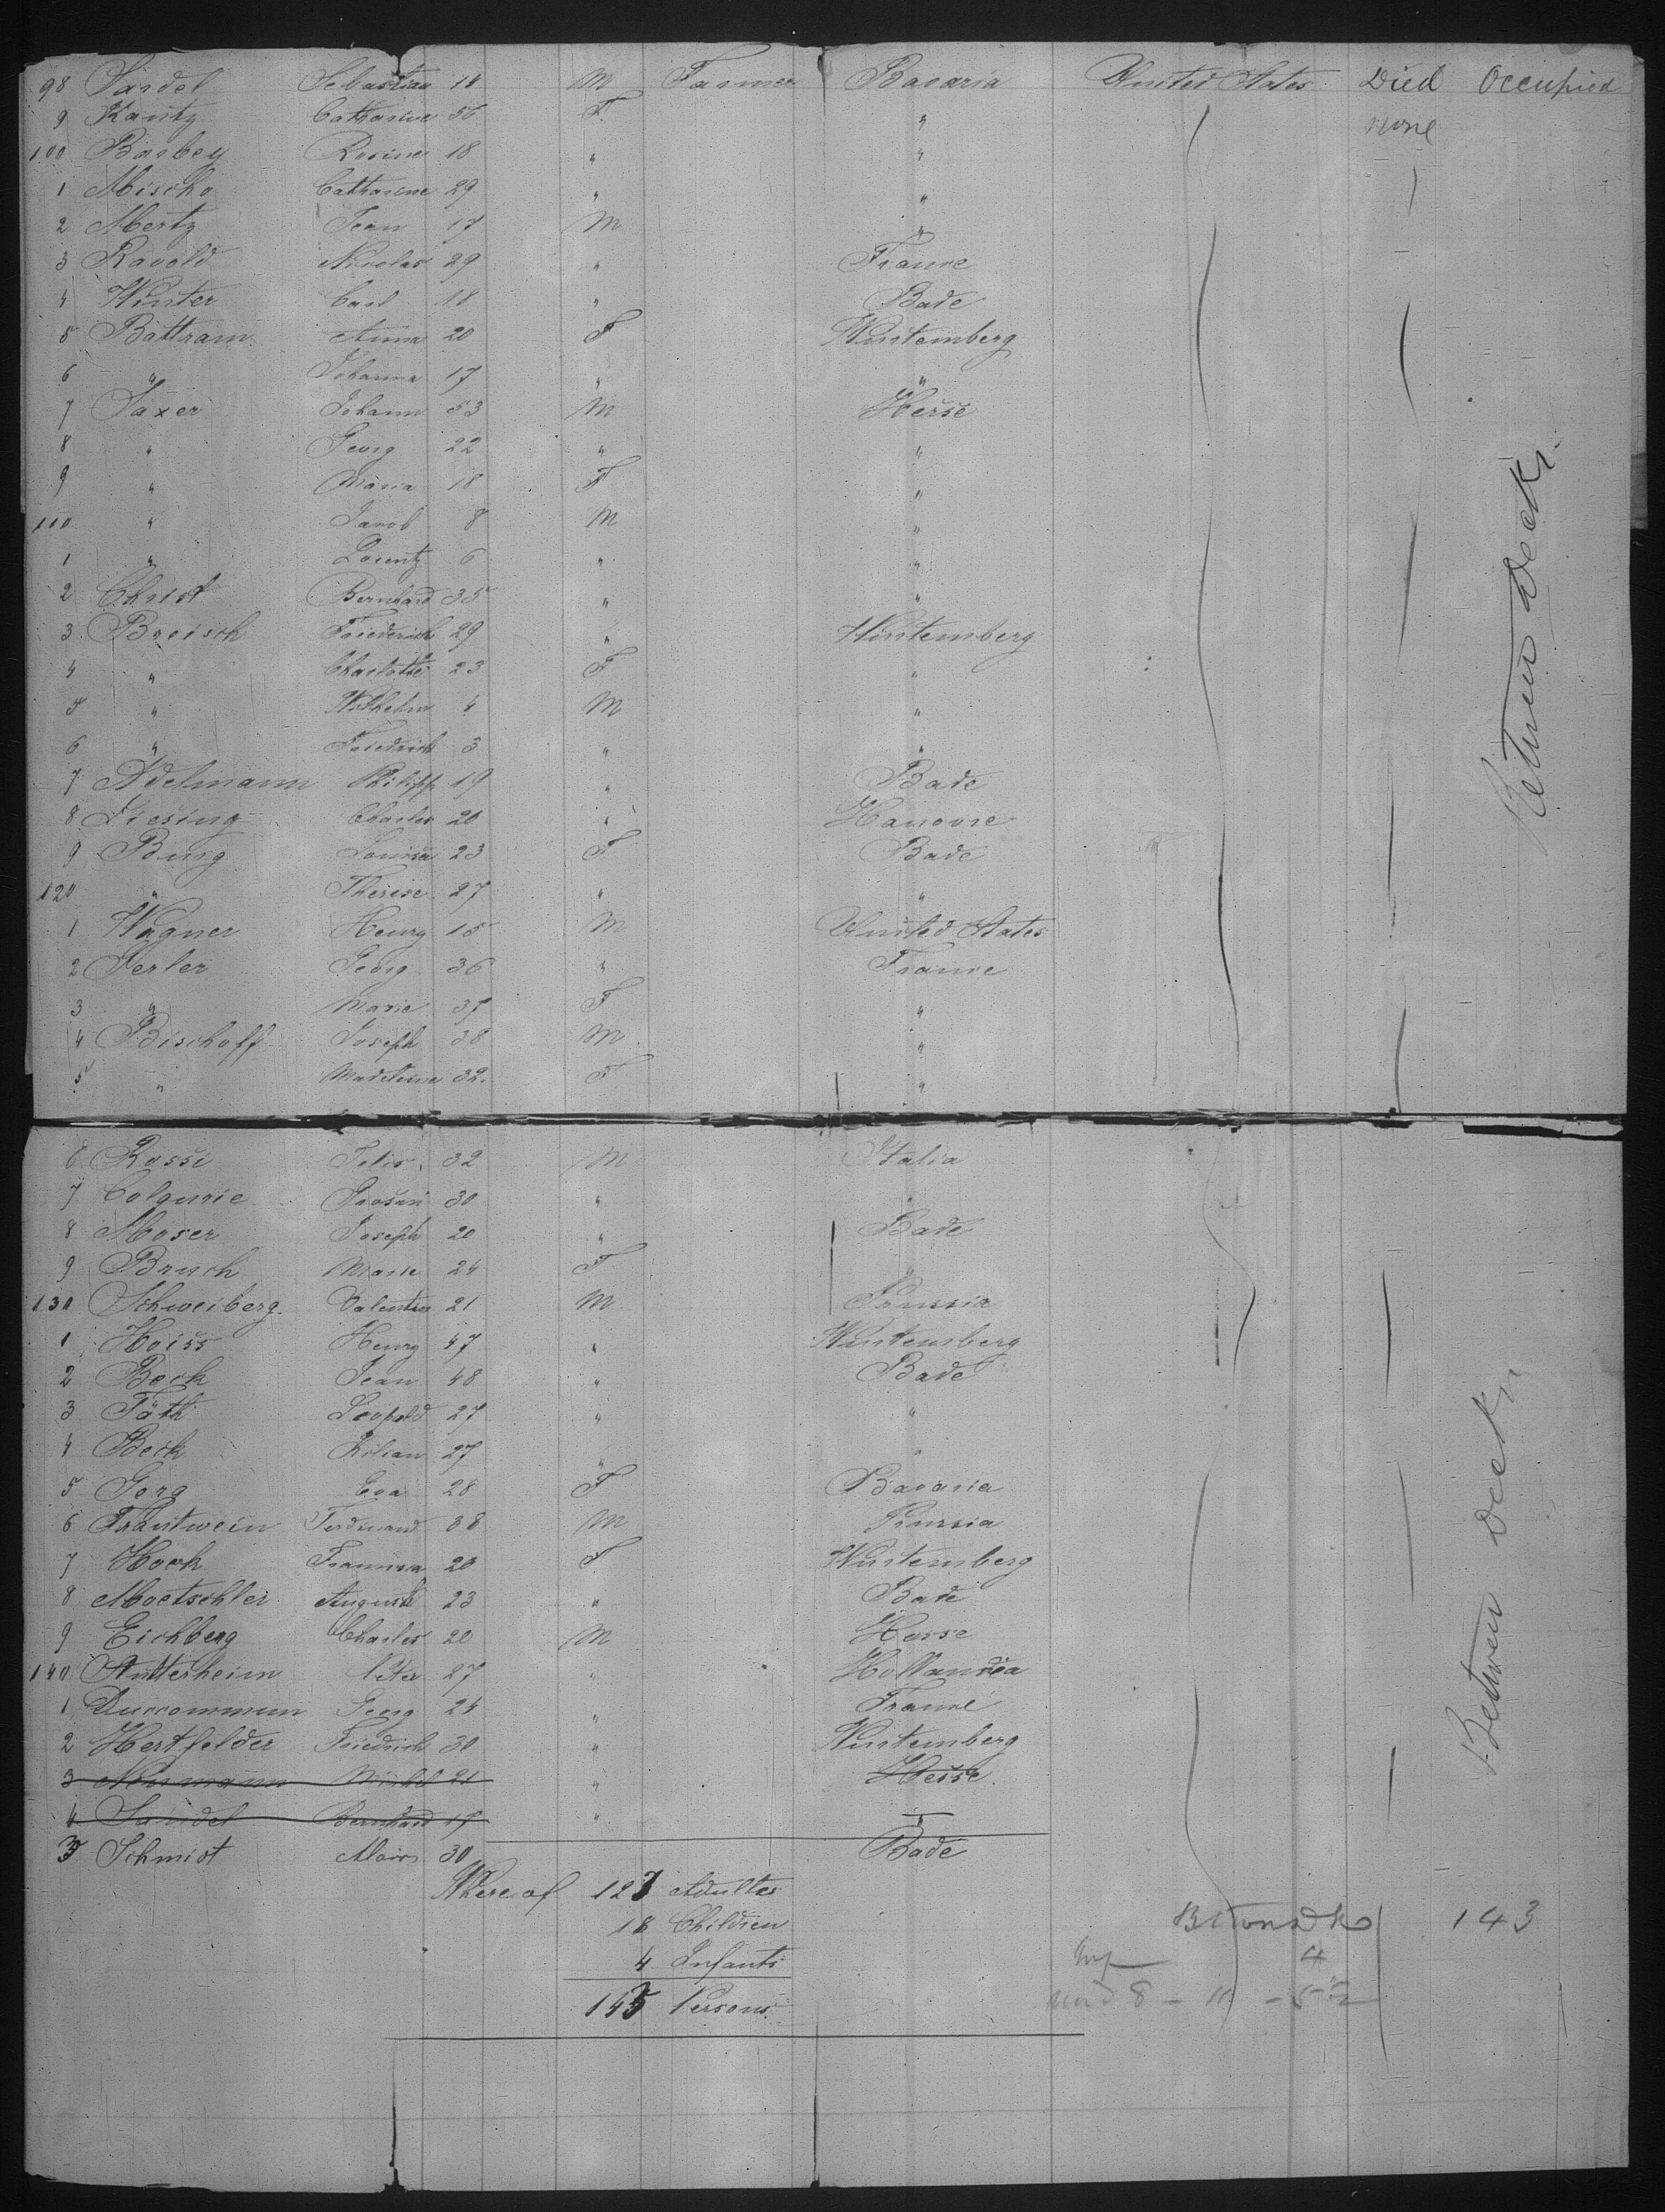 98 Sandel Sebastian 18 M Farmer Bavaria United States Died Occupied
9 Kantz Catharine 56 F " none
100 Barbey Rosine 18 " "
1 Mischo Catharine 29 " "
2 Mertz Jean 17 M "
3 Ravold Nicolas 29 " France
4 Winter Carl 18 " Bade
5 Battram Anna 20 F Wurtemberg
6 " Johanna 17 " "
7 Saxer Johann 53 M Hesse
8 " Georg 22 " "
9 " Maria 18 F "
110 " Jacob 8 M "
1 " Lorentz 6 " "
2 Christ Bernhard 35 " "
3 Breisch Friederich 29 " Wurtemberg
4 " Charlotte 23 F "
5 " Wilhelm 4 M "
6 " Friedrich 3 " "
7 Adelmann Philipp 19 " Bade
8 Giesing Charles 20 " Hanovre
9 Burg Louisa 23 F Bade
120 " Therese 27 " "
1 Wagner Henry 15 M United States
2 Ferler Georg 36 " France
3 " Marie 37 F "
4 Bischoff Joseph 38 M "
5 " Madeleine 32 F "
Between Decks
6 Rossi Felix 32 M Italia
7 30 " "
8 Moser Joseph 20 " Bade
9 Bruch Marie 24 F "
130 Schweiberg Valentin 21 M Prussia
1 Hoiss Henry 47 " Wurtemberg
2 Bech Jean 48 " Bade
3 Fäth Leopold 27 " "
4 Bech Kilian 27 " "
5 Gerg Eva 28 F Bavaria
6 Trautwein Ferdinand 38 M Prussia
7 Hoch Francisca 20 F Wurtemberg
8 Moetschler Auguste 23 " Bade
9 Eichberg Charles 20 M Hesse
140 Stutterheim Peter 27 " Hollandia
1 Duccommun Georg 24 " France
2 Hertfelder Friedrich 30 " Wurtemberg
3 Neumann Michel 21 " Hesse
4 Sandel Bernhard 17 "
3 Schmidt Alois 30 Bade
Between Decks
Whereof 123 Adultes
18 Children
4 Infants
145 Persons
143
4